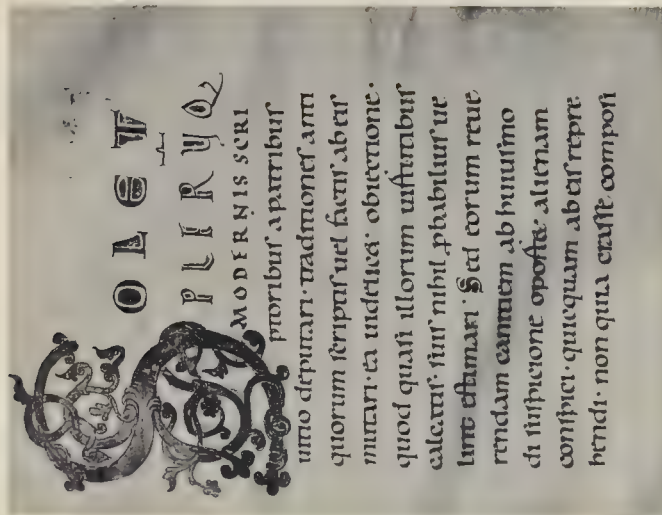 SOLET
PLERUQ
MODERNIS SCRI
ptoribuſ a patribuſ
uitio deputari · traditioneſ anti
quorum ſcriptiſ uel factiſ ab eiſ
imitari · ea uidelicet obiectione ·
quod quaſi illorum
calcatiſ · ſuiſ nihil phabiliuſ ue
lint eſtimari · Sed eorum reue
rendam ab huiuſmo
di ſuſpicione alienam
conſpici · quicquam ab eiſ repre
hendi · non quia craſſe compoſi